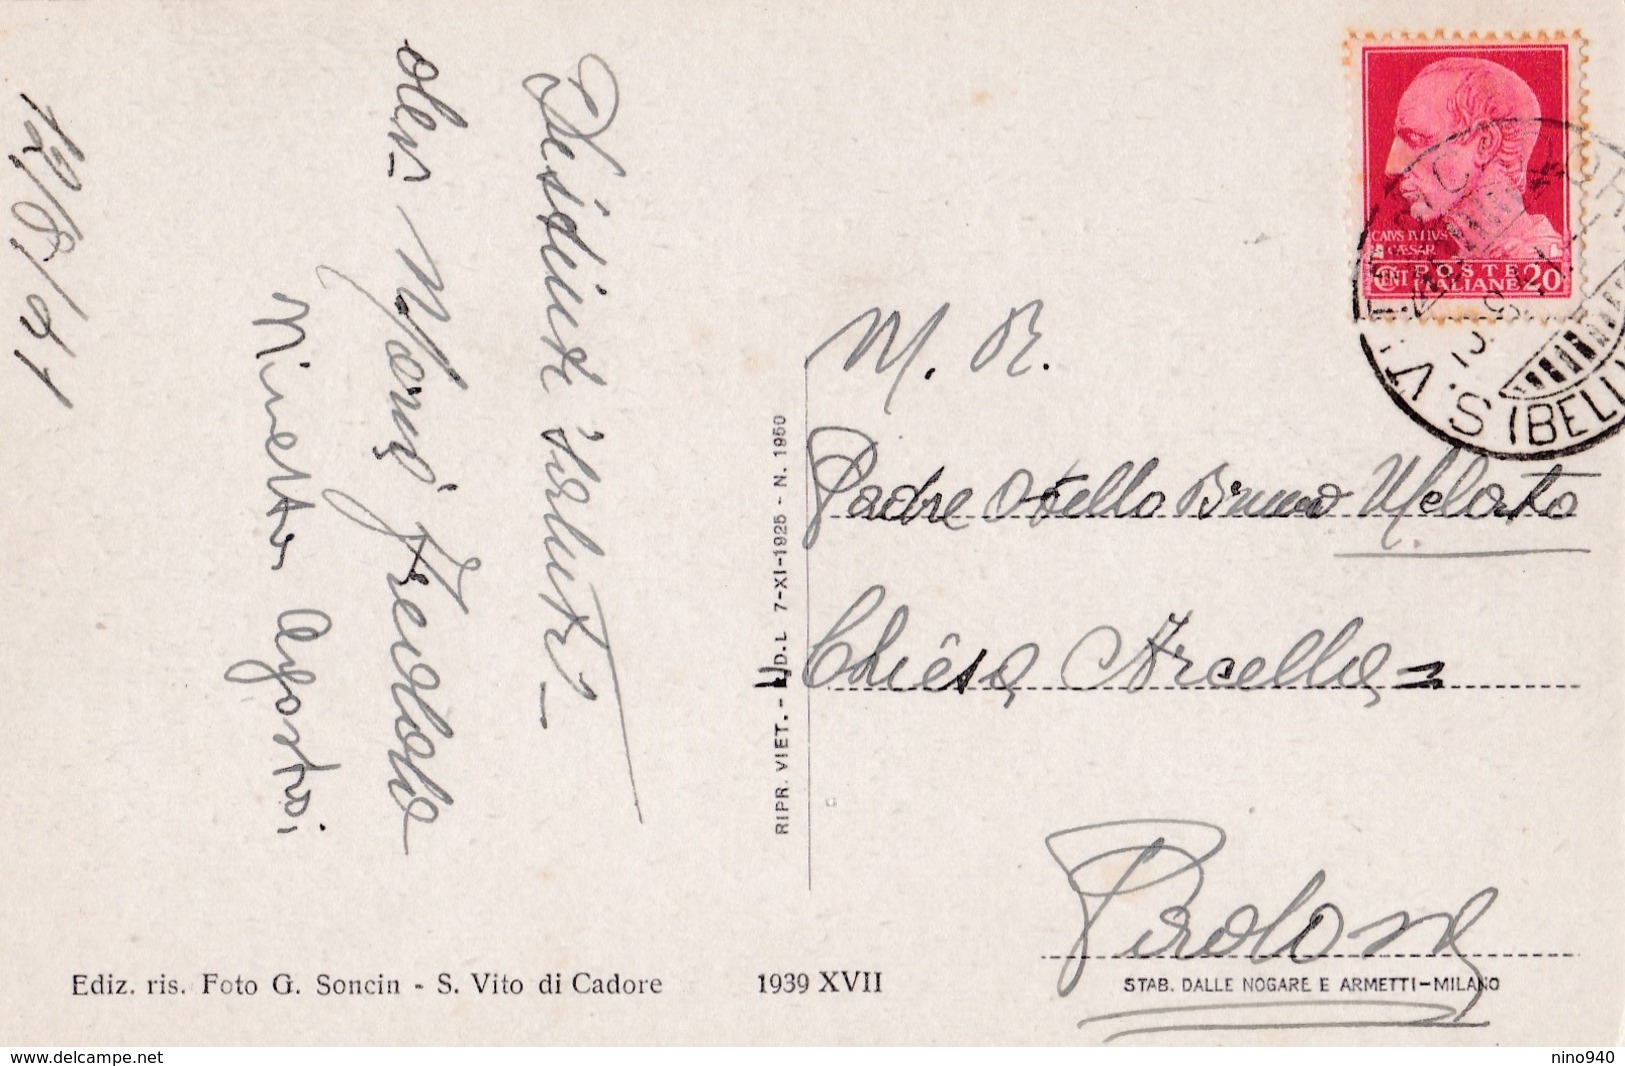 12/8/41
Distinti saluti
Nives Fredolo
Ninetta Agosti
M. R.
Padre Otello Bruno Melato
Chiesa Arcella =
Padova
CAIVS IVLIVS
CÆSAR
CENT POSTE ITALIANE 20
S. V
(BELL
RIPR. VIET. - D.L 7-XI-1925 - N. 1950
Ediz. ris. Foto G. Soncin - S. Vito di Cadore
1939 XVII
STAB. DALLE NOGARE E ARMETTI-MILANO
www.delcampe.net
nino940